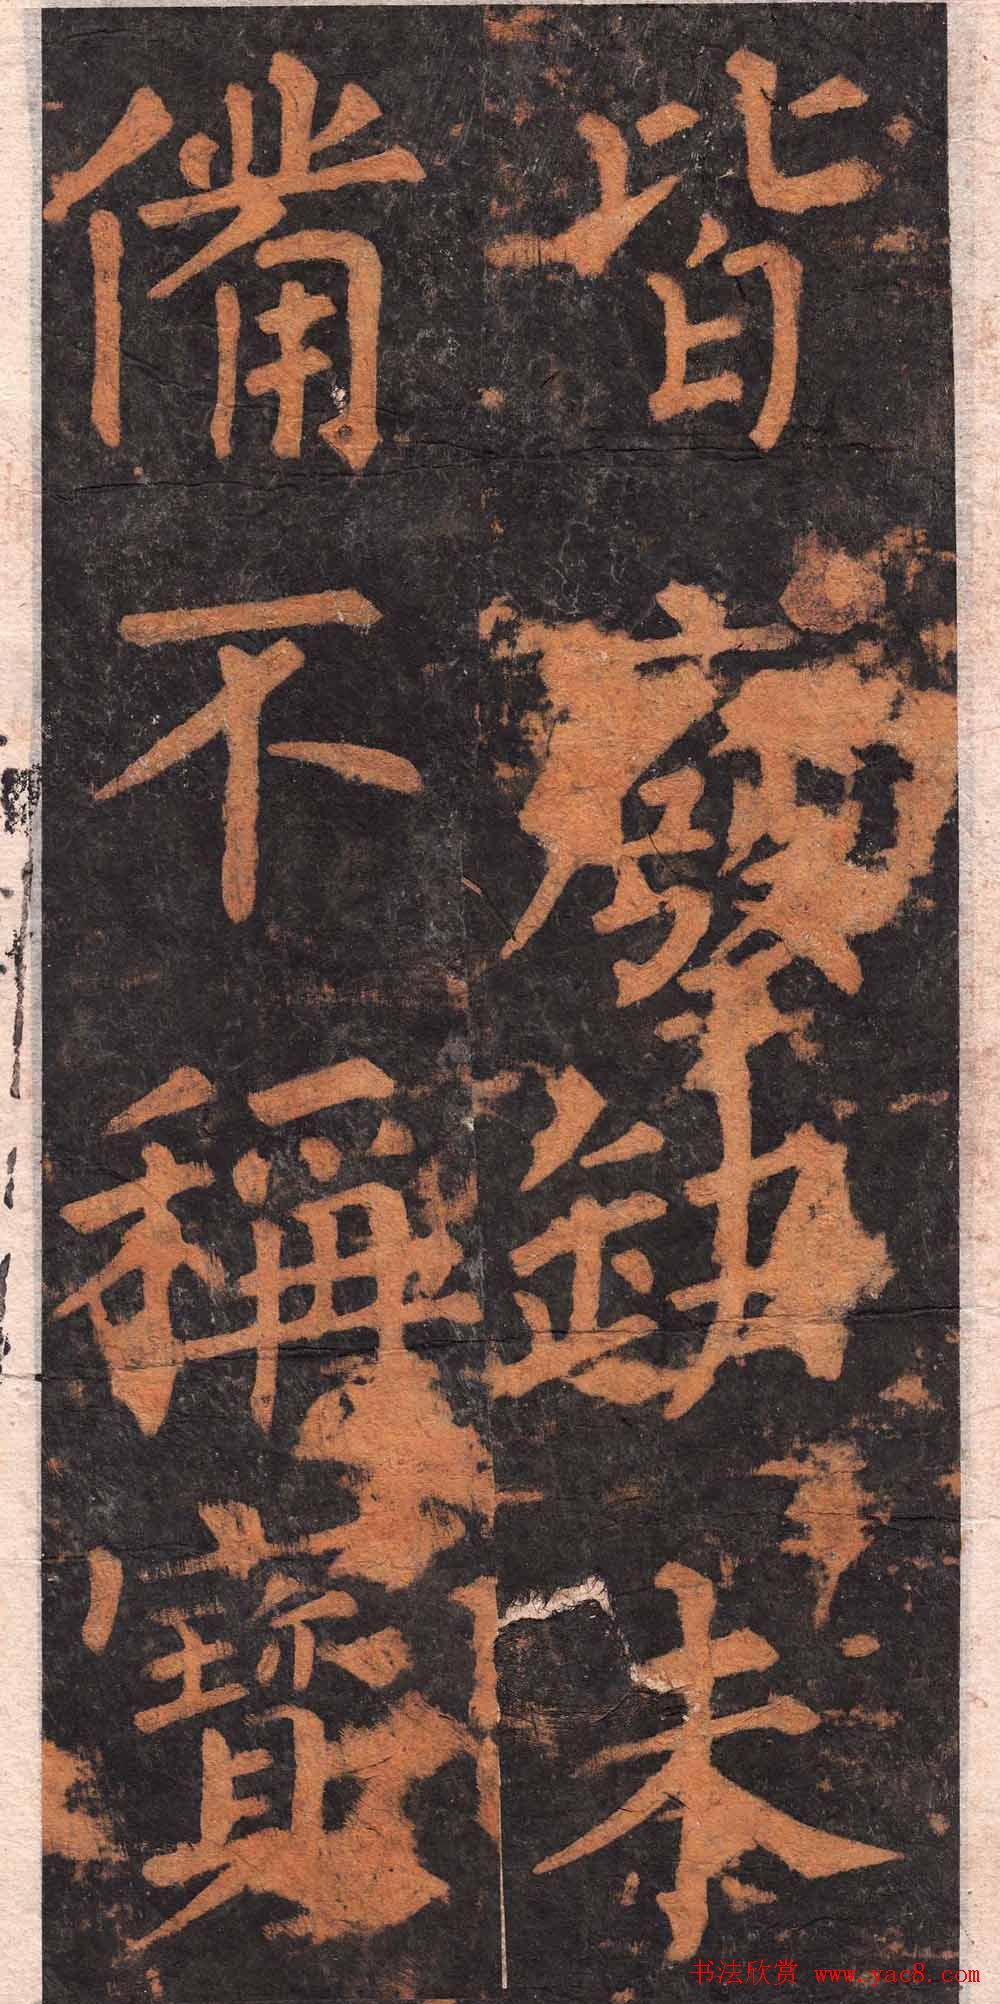 皆廢缺未
備不稱寶
书法欣赏 www.yac8.com